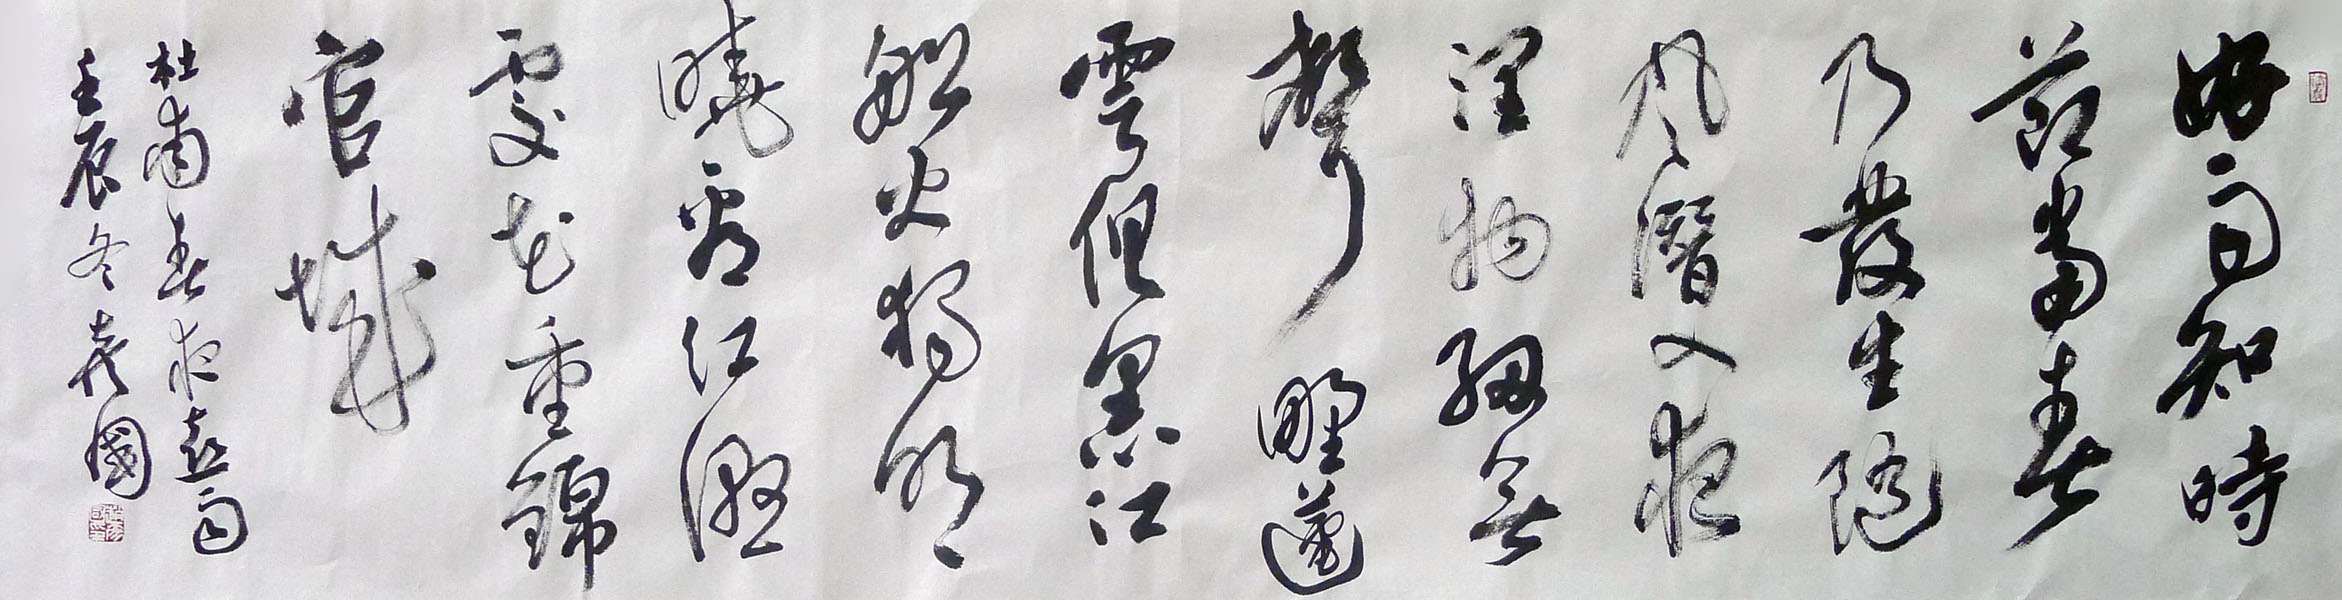 好雨知時
節當春
乃發生隨
風潛入夜
潤物細無
聲野
雲俱黑江
船火獨明
曉看紅濕
處花重錦
官城
杜甫春夜喜雨
壬辰冬國